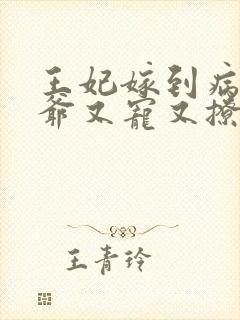 王妃嫁到病
爷又宠又撩
王青玲